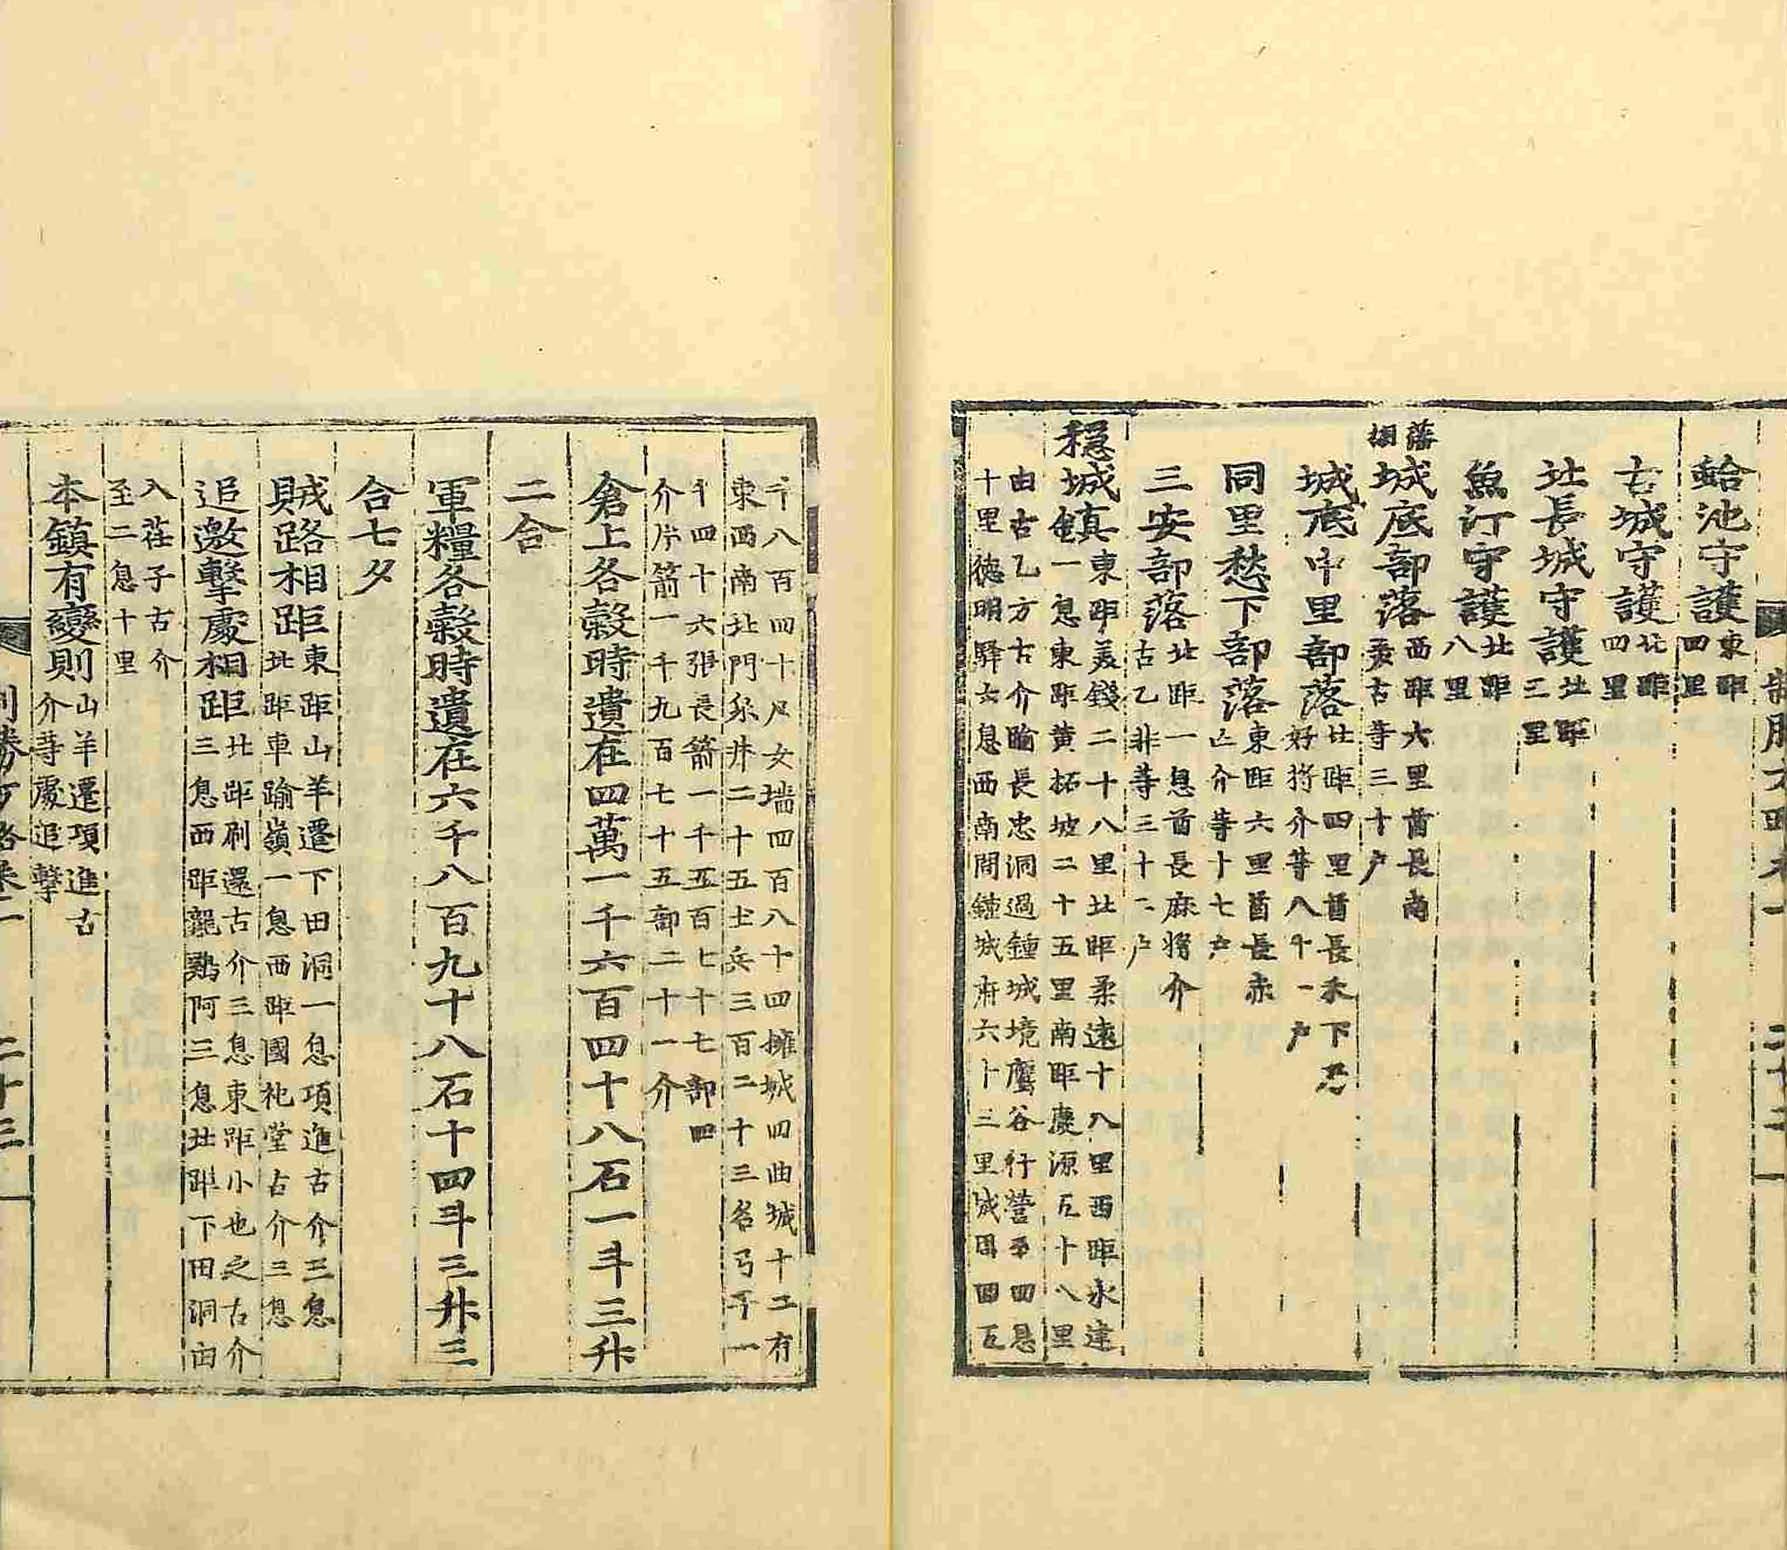 蛤池守護東距四里
古城守護北距四里
北長城守護北距三里
魚汀守護北距八里
藩胡城底部落西距六里酋長南古等三十戶
城底中里部落北距四里酋長禾下乃好將介等八十一戶
同里愁下部落東距六里酋長赤亡介等十七戶
三安部落北距一息酋長麻將介古乙非等三十二戶
穩城鎮東距美錢二十八里北距柔遠十八里西距永達
一息東距黃柘坡二十五里南距慶源五十八里
由古乙方古介踰長忠洞過鍾城境鷹谷行營四息
十里德明驛六息西南間鍾城府六十三里城周四五
千八百四十尺女墻四百八十四擁城四曲城十二有
東西南北門泉井二十五士兵三百二十三名弓子一
千四十六張長箭一千五百七十七部四
介片箭一千九百七十五部二十一介
倉上各穀時遺在四萬一千六百四十八石一斗三升
二合
軍糧各穀時遺在六千八百九十八石十四斗三升三
合七夕
賊路相距東距山羊遷下田洞一息項進古介三息
北距車踰嶺一息西距國祀堂古介三息
追邀擊處相距北距刷還古介三息東距小也之古介
三息西距龍鷄阿三息北距下田洞由
入茬子古介
至二息十里
本鎮有變則山羊遷項進古
介等處追擊